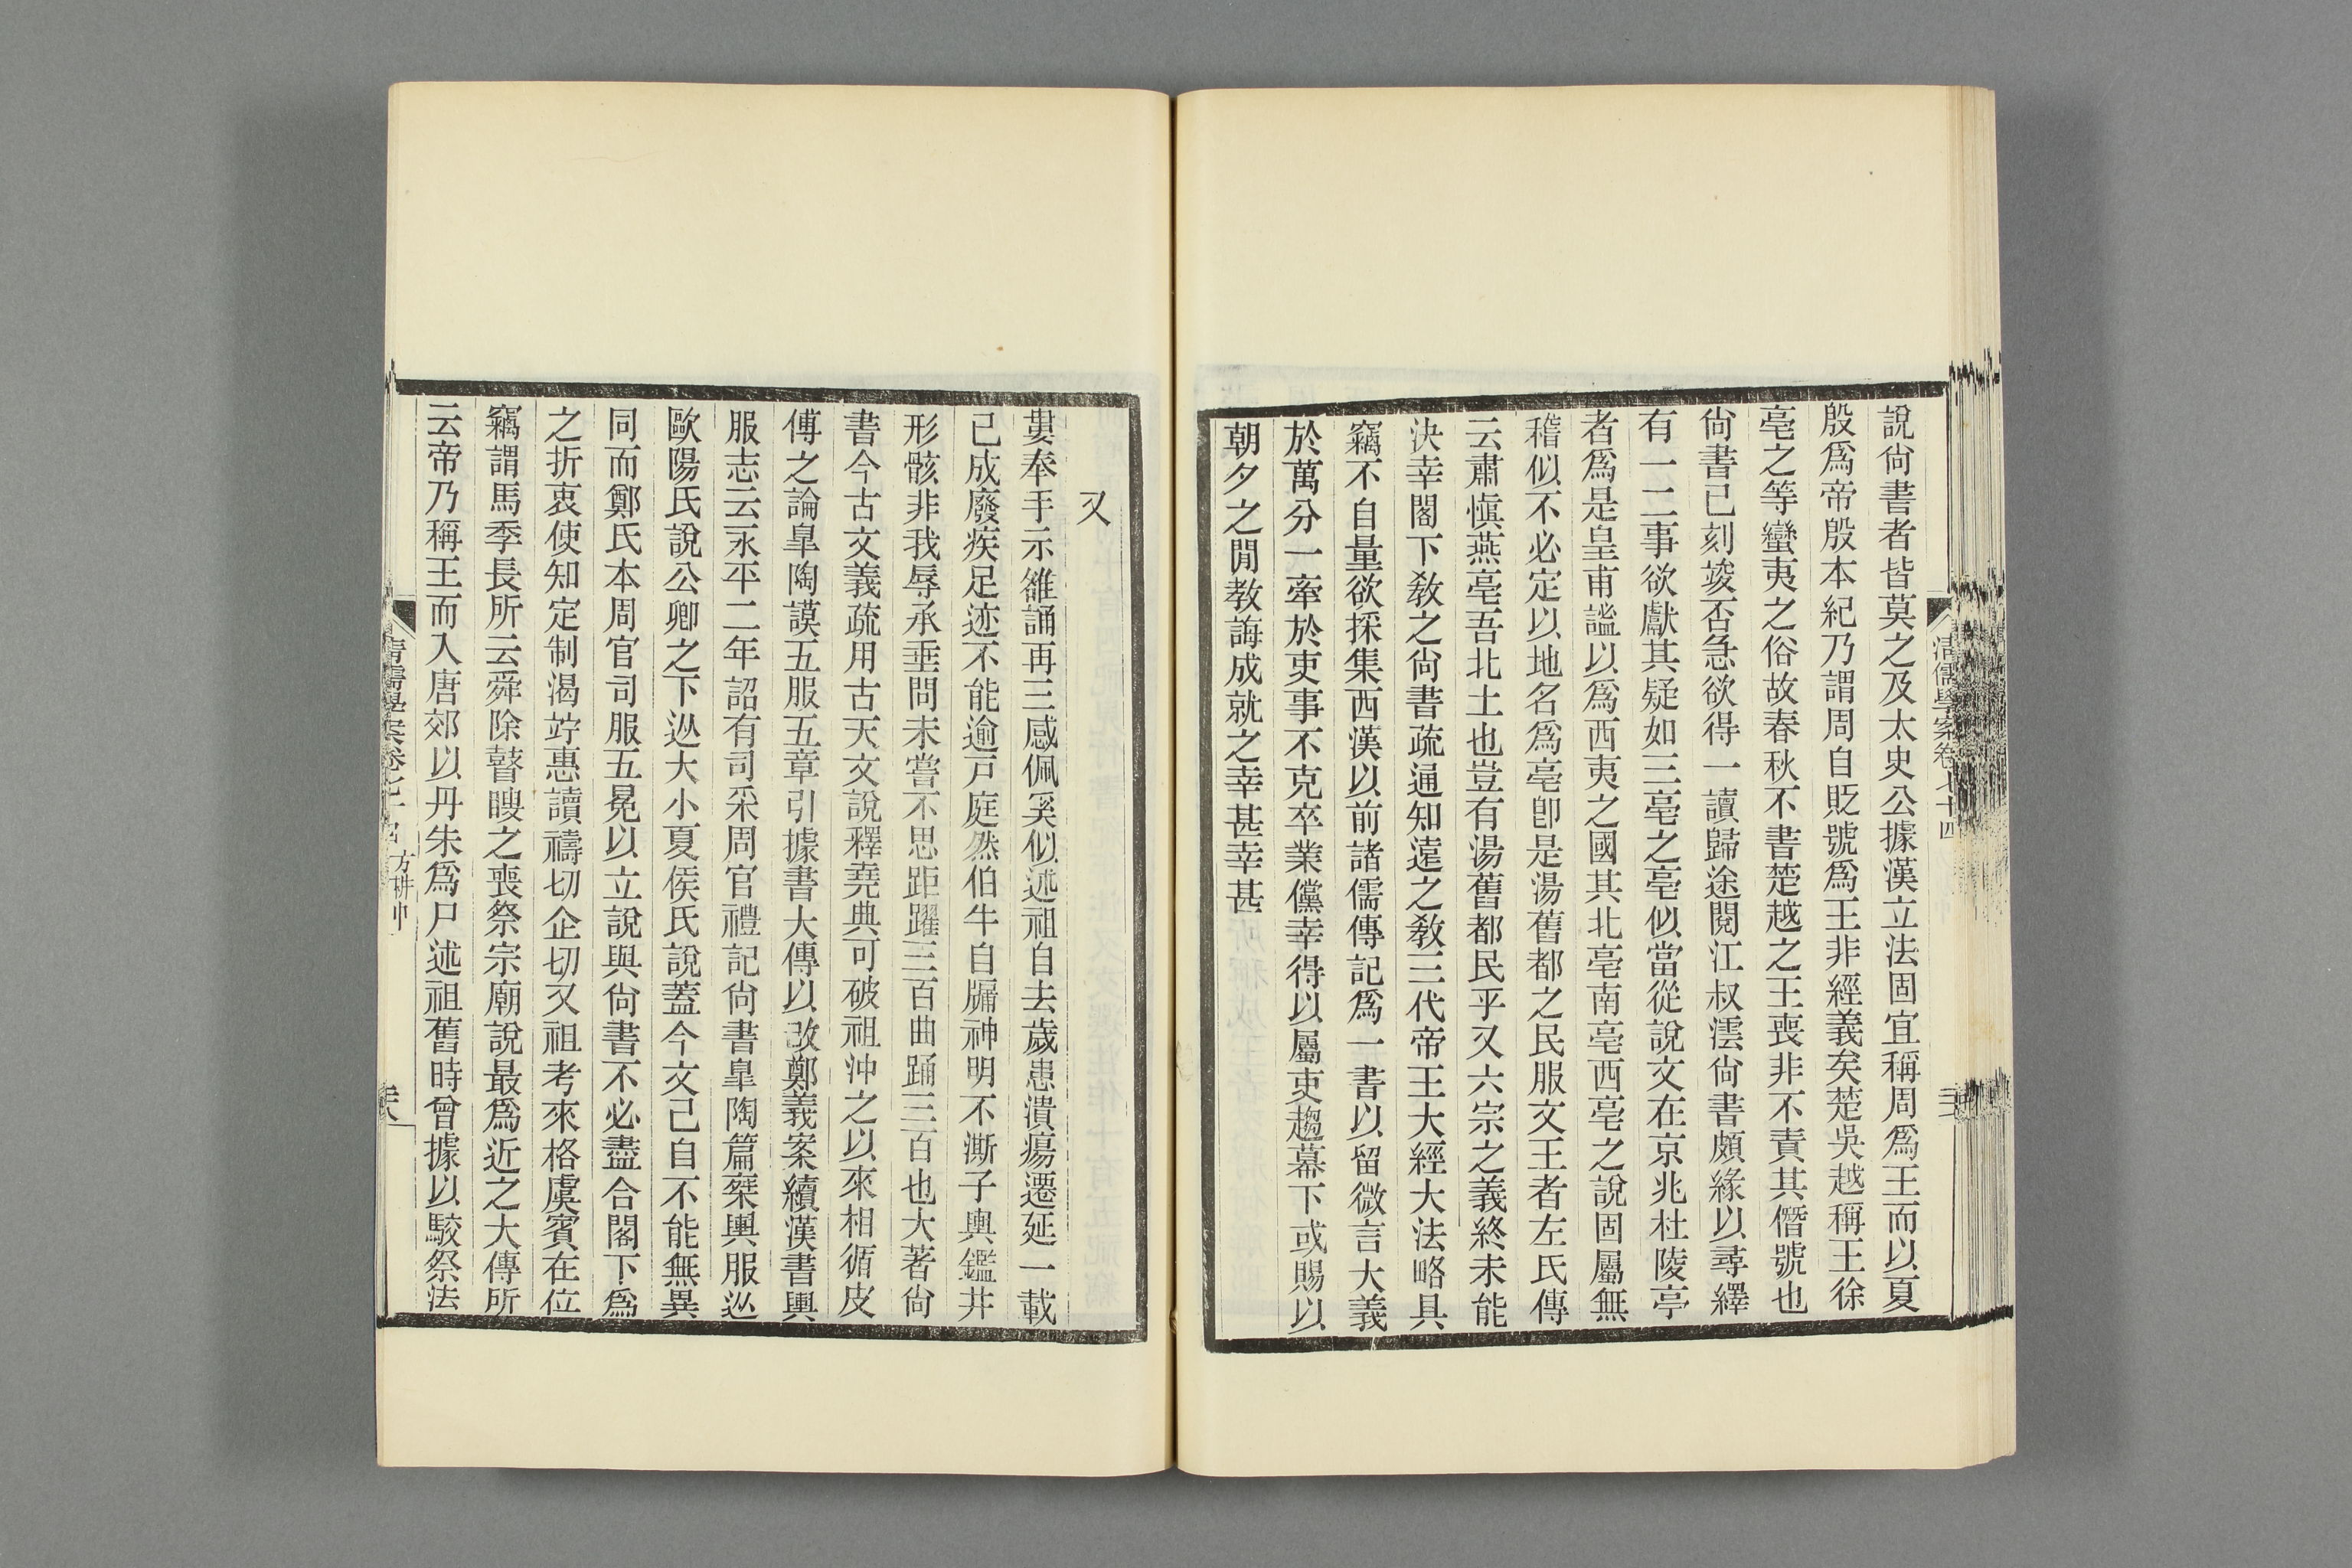 說尙書者皆莫之及太史公據漢立法固宜稱周爲王而以夏
殷爲帝殷本紀乃謂周自貶號爲王非經義矣楚吳越稱王徐
亳之等蠻夷之俗故春秋不書楚越之王喪非不責其僭號也
尙書已刻竣否急欲得一讀歸途閱江叔澐尙書頗緣以尋繹
有一二事欲獻其疑如三亳之亳似當從說文在京兆杜陵亭
者爲是皇甫謐以爲西夷之國其北亳南亳西亳之說固屬無
稽似不必定以地名爲亳卽是湯舊都之民服文王者左氏傳
云肅愼燕亳吾北土也豈有湯舊都民乎又六宗之義終未能
決幸閣下敎之尙書疏通知遠之敎三代帝王大經大法略具
竊不自量欲採集西漢以前諸儒傳記爲一書以留微言大義
於萬分一牽於吏事不克卒業儻幸得以屬吏趨幕下或賜以
朝夕之閒敎誨成就之幸甚幸甚
清儒學案卷七十四
又
婁奉手示雒誦再三感佩奚似述祖自去歲患潰瘍遷延一載
已成廢疾足迹不能逾戸庭然伯牛自牖神明不澌子輿鑑井
形骸非我辱承垂問未嘗不思距躍三百曲踊三百也大著尙
書今古文義疏用古天文說釋堯典可破祖沖之以來相循皮
傅之論皋陶謨五服五章引據書大傳以改鄭義案續漢書輿
服志云永平二年詔有司采周官禮記尙書皋陶篇乘輿服從
歐陽氏說公卿之下從大小夏侯氏說蓋今文已自不能無異
同而鄭氏本周官司服五冕以立說與尙書不必盡合閣下爲
之折衷使知定制渴竚惠讀禱切企切又祖考來格虞賓在位
竊謂馬季長所云舜除瞽瞍之喪祭宗廟說最爲近之大傳所
云帝乃稱王而入唐郊以丹朱爲尸述祖舊時曾據以駮祭法
清儒學案卷七十四 方耕中